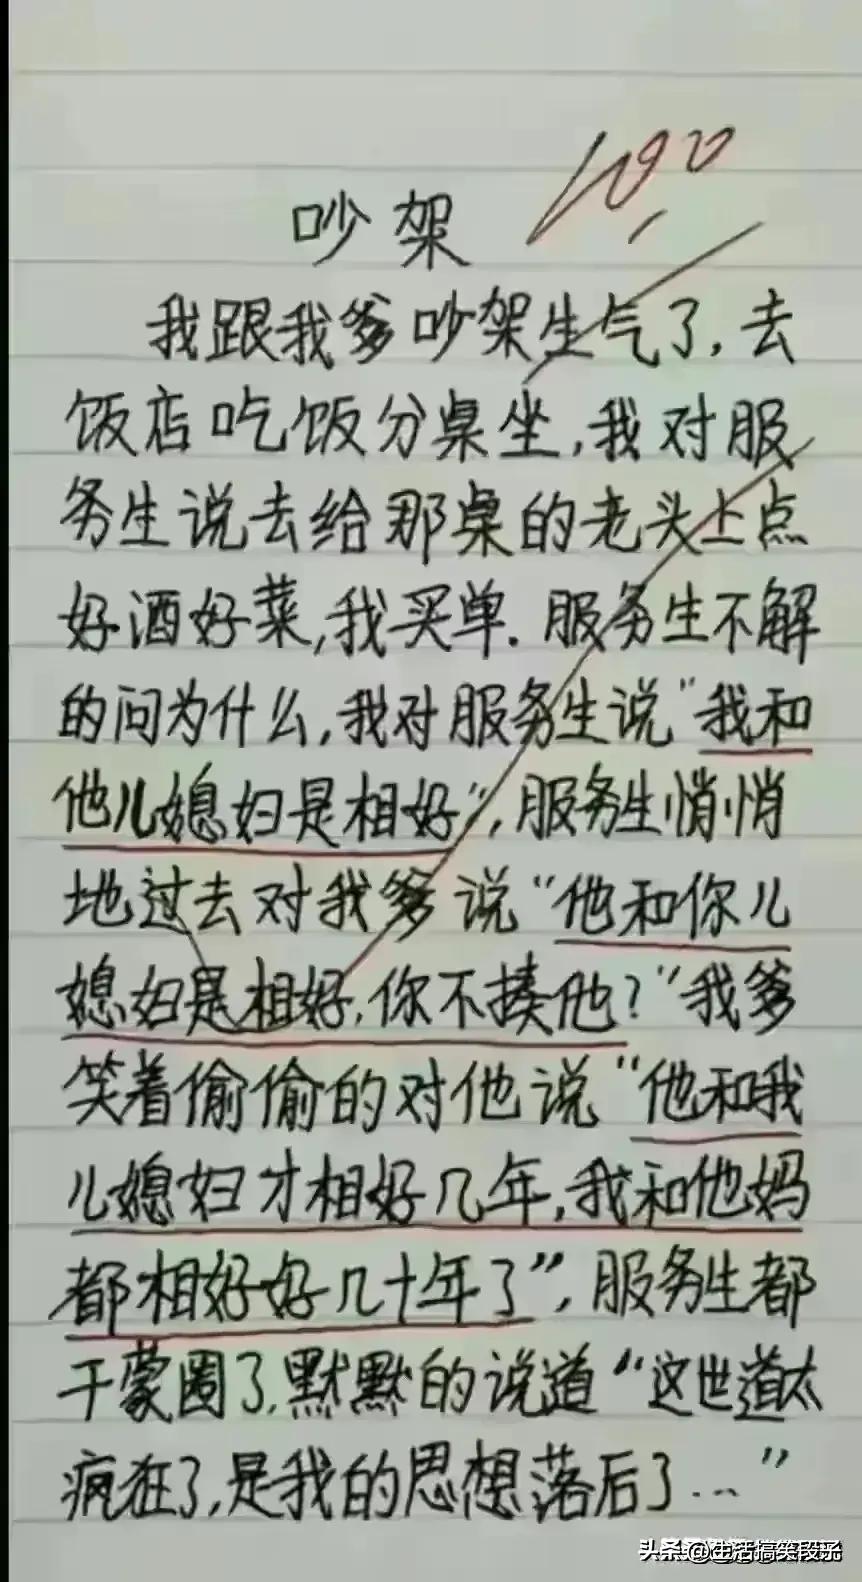 100
吵架
我跟我爹吵架生气了,去
饭店吃饭分桌坐,我对服
务生说去给那桌的老头上点
好酒好菜,我买单.服务生不解
的问为什么,我对服务生说"我和
他儿媳妇是相好",服务生悄悄
地过去对我爹说"他和你儿
媳妇是相好,你不揍他?"我爹
笑着偷偷的对他说"他和我
儿媳妇才相好几年,我和他妈
都相好好几十年了",服务生都
干蒙圈了,默默的说道"这世道太
疯狂了,是我的思想落后了..."
头条@生活搞笑段子